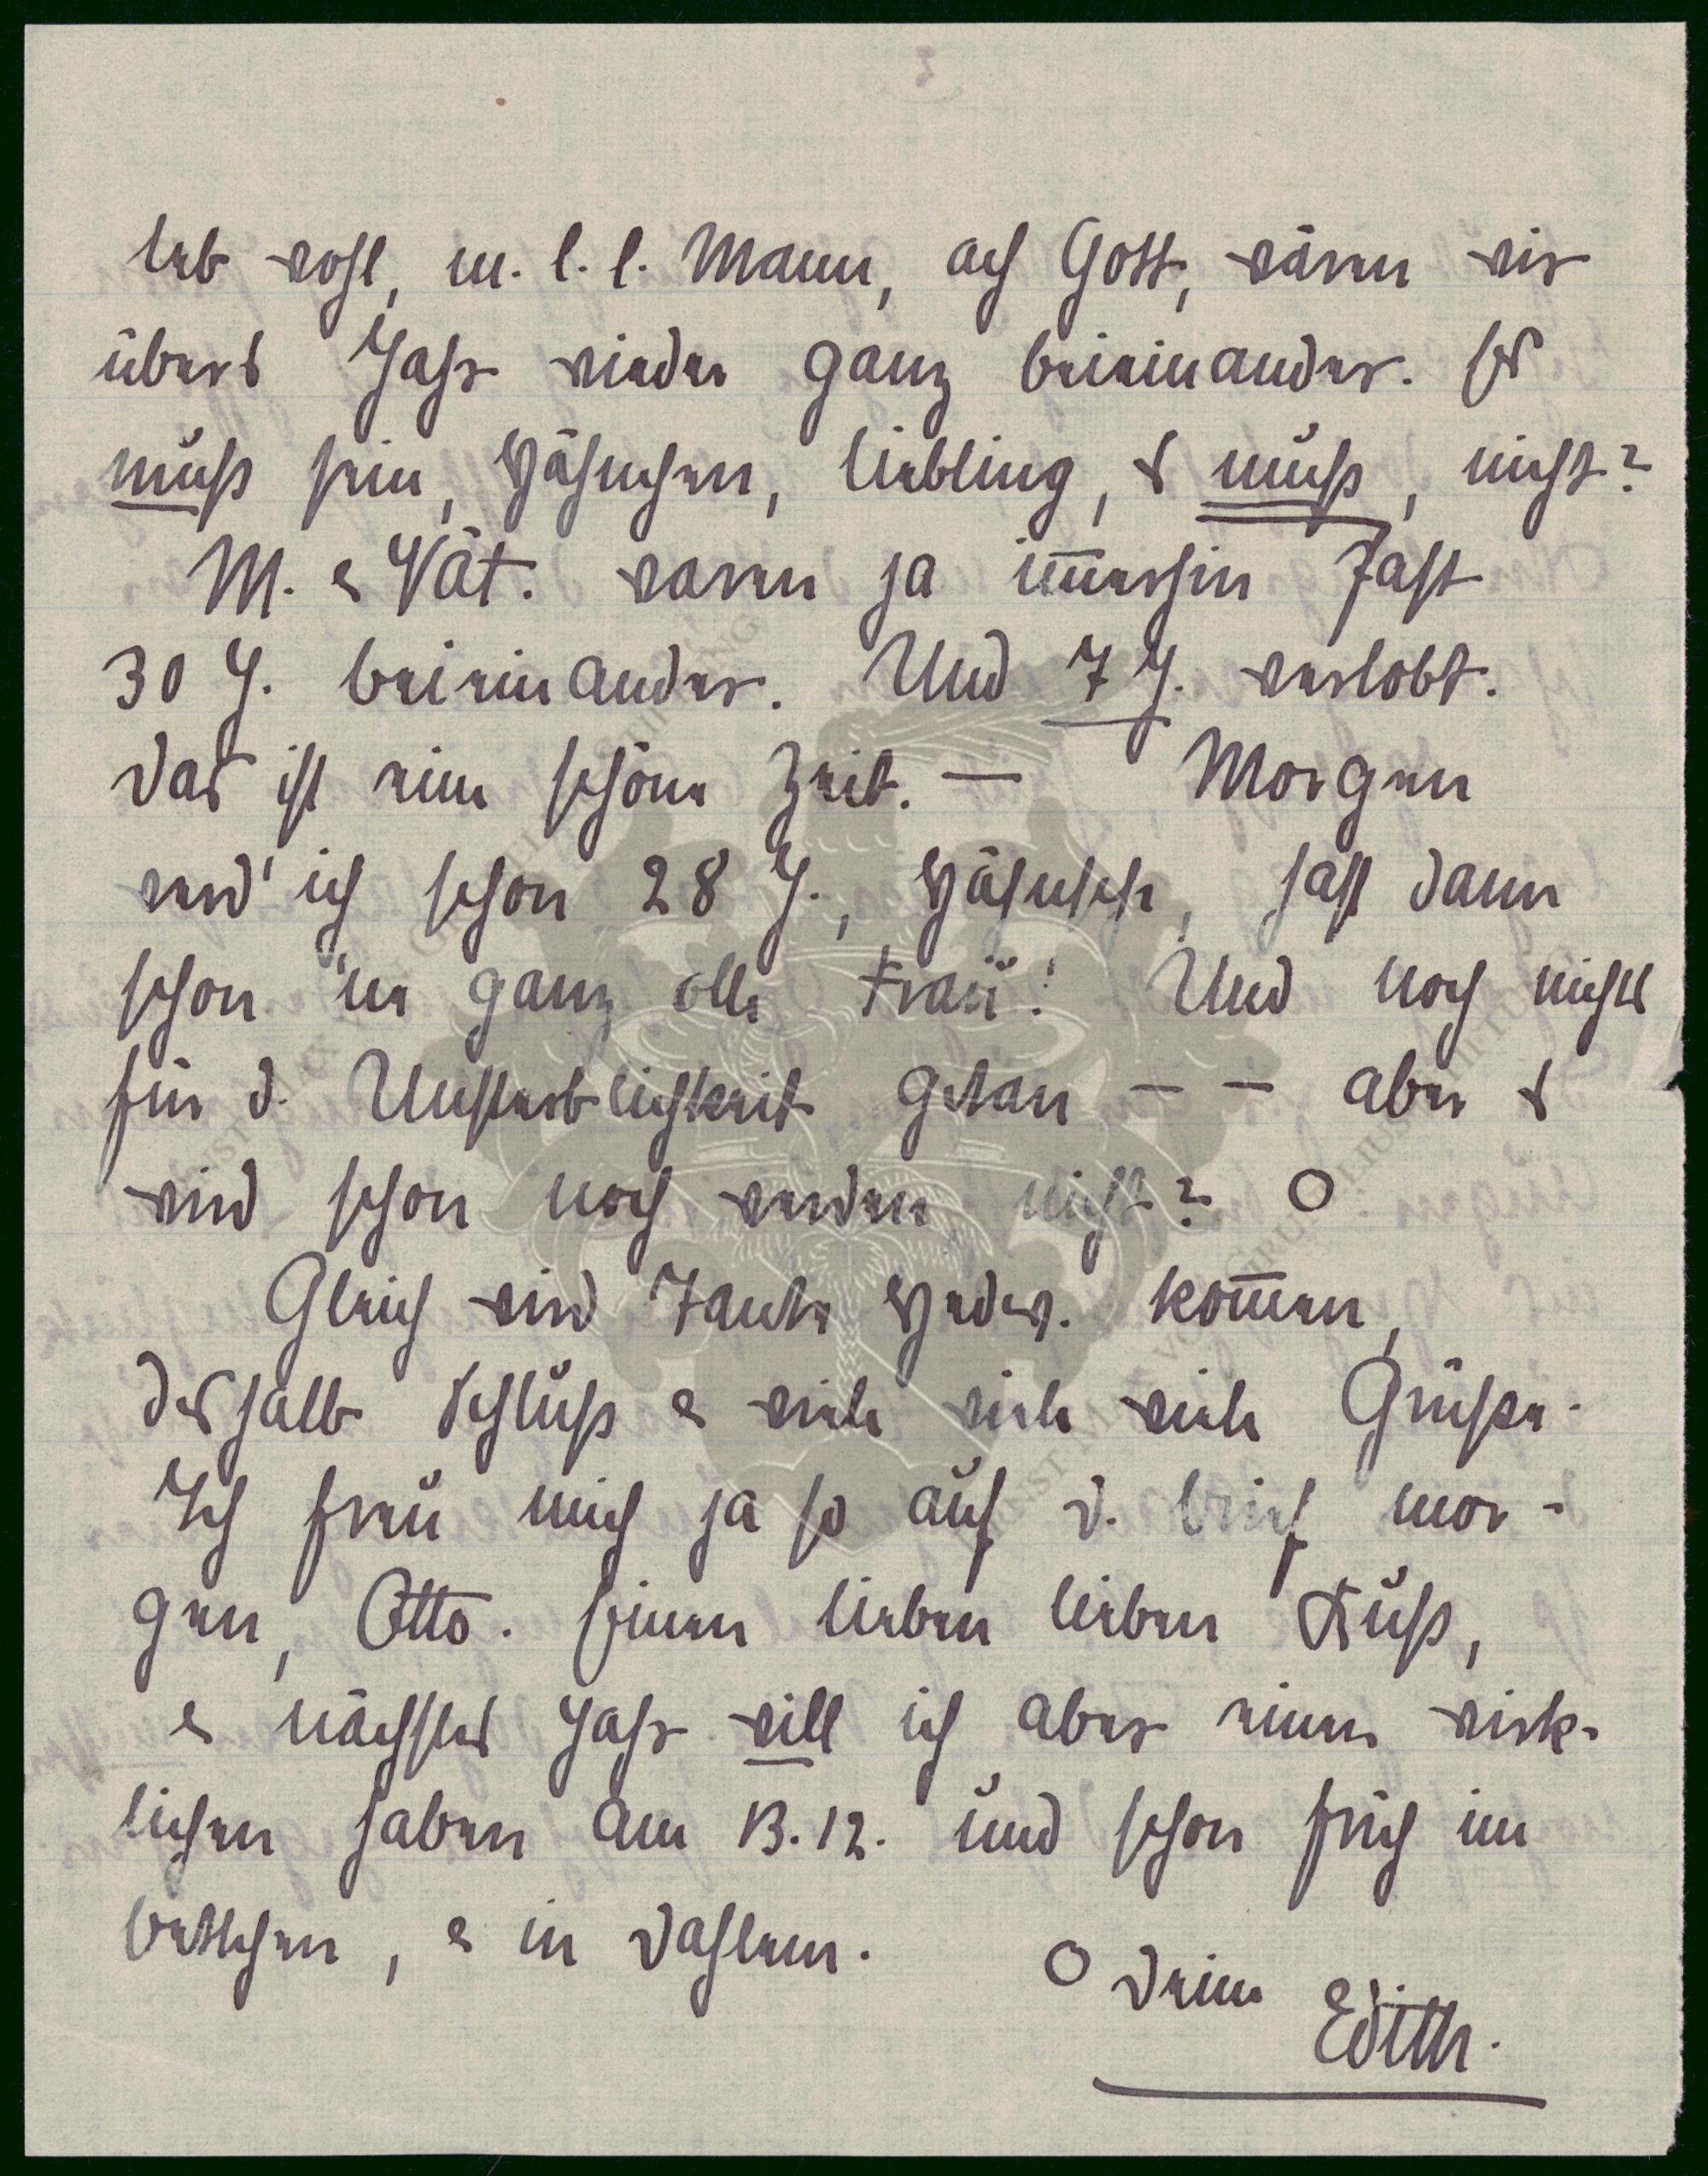 Leb wohl, m. l. l. Mann, ach Gott, wären wir
übers Jahr wieder ganz beieinander. Es
muß sein, Hähnchen, Liebling, es muß, nicht?
M. & Vät. waren ja immerhin fast
30 J. beieinander. Und 7 J. verlobt.
Das ist eine schöne Zeit. — Morgen
werd' ich schon 28 J., Hähnche, hast dann
schon 'ne ganz olle Frau! Und noch nichts
für d. Unsterblichkeit getan — — aber es
wird schon noch werden nicht? O
Gleich wird Tante Hedw. kommen,
deshalb Schluß & viele viele viele Grüße.
Ich freu mich ja so auf d. Brief mor-
gen, Otto. Einen lieben lieben Kuß,
& nächstes Jahr will ich aber einen wirk-
lichen haben am 13.12. und schon früh im
Bettchen, & in Dahlem.
O Deine Edith.